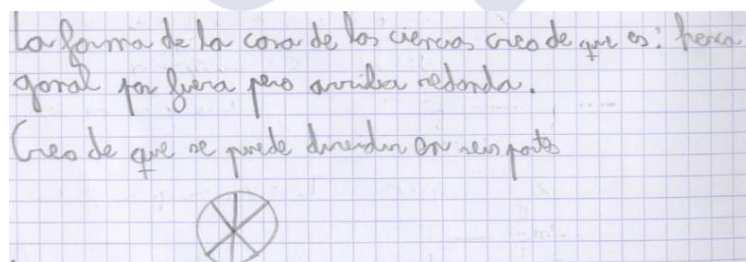 La forma de la casa de las ciencias creo de que es: hexa
gonal por fuera pero arriba redonda.
Creo de que se puede dividir en seis partes